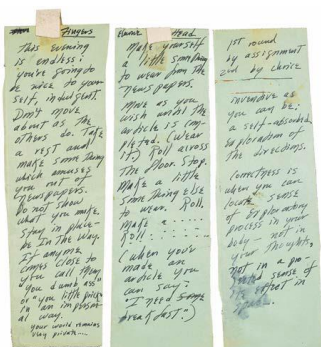 Fingers
This evening
is endless:
you're going to
be nice to your
self, indulgent.
Don't move
about as the
others do. Take
a rest and
make something
which amuses
you out of
newspapers.
Do not show
what you make.
Stay in place –
be In The Way.
If anyone
comes close to
you call them
"you dumb ass"
or "you little prick"
in an imperson-
al way.
Your world remains
very private....
Head
Make yourself
a little something
to wear from the
newspapers.
Move as you
wish until the
article is com-
pleted. (Wear
it) Roll across
the floor. Stop.
Make a little
something else
to wear. Roll.
Make . . . . . .
Roll . . . . . .
(when you've
made an
article you
can say:
"I need some
breakfast".)
1st round
by assignment
2nd by choice
inventive as
you can be:
a self-absorbed
exploration of
the directions.
Correctness is
when you can
locate sense
of exploratory
process in your
body – not in
your thoughts,
not in a pro-
sense of
effect in